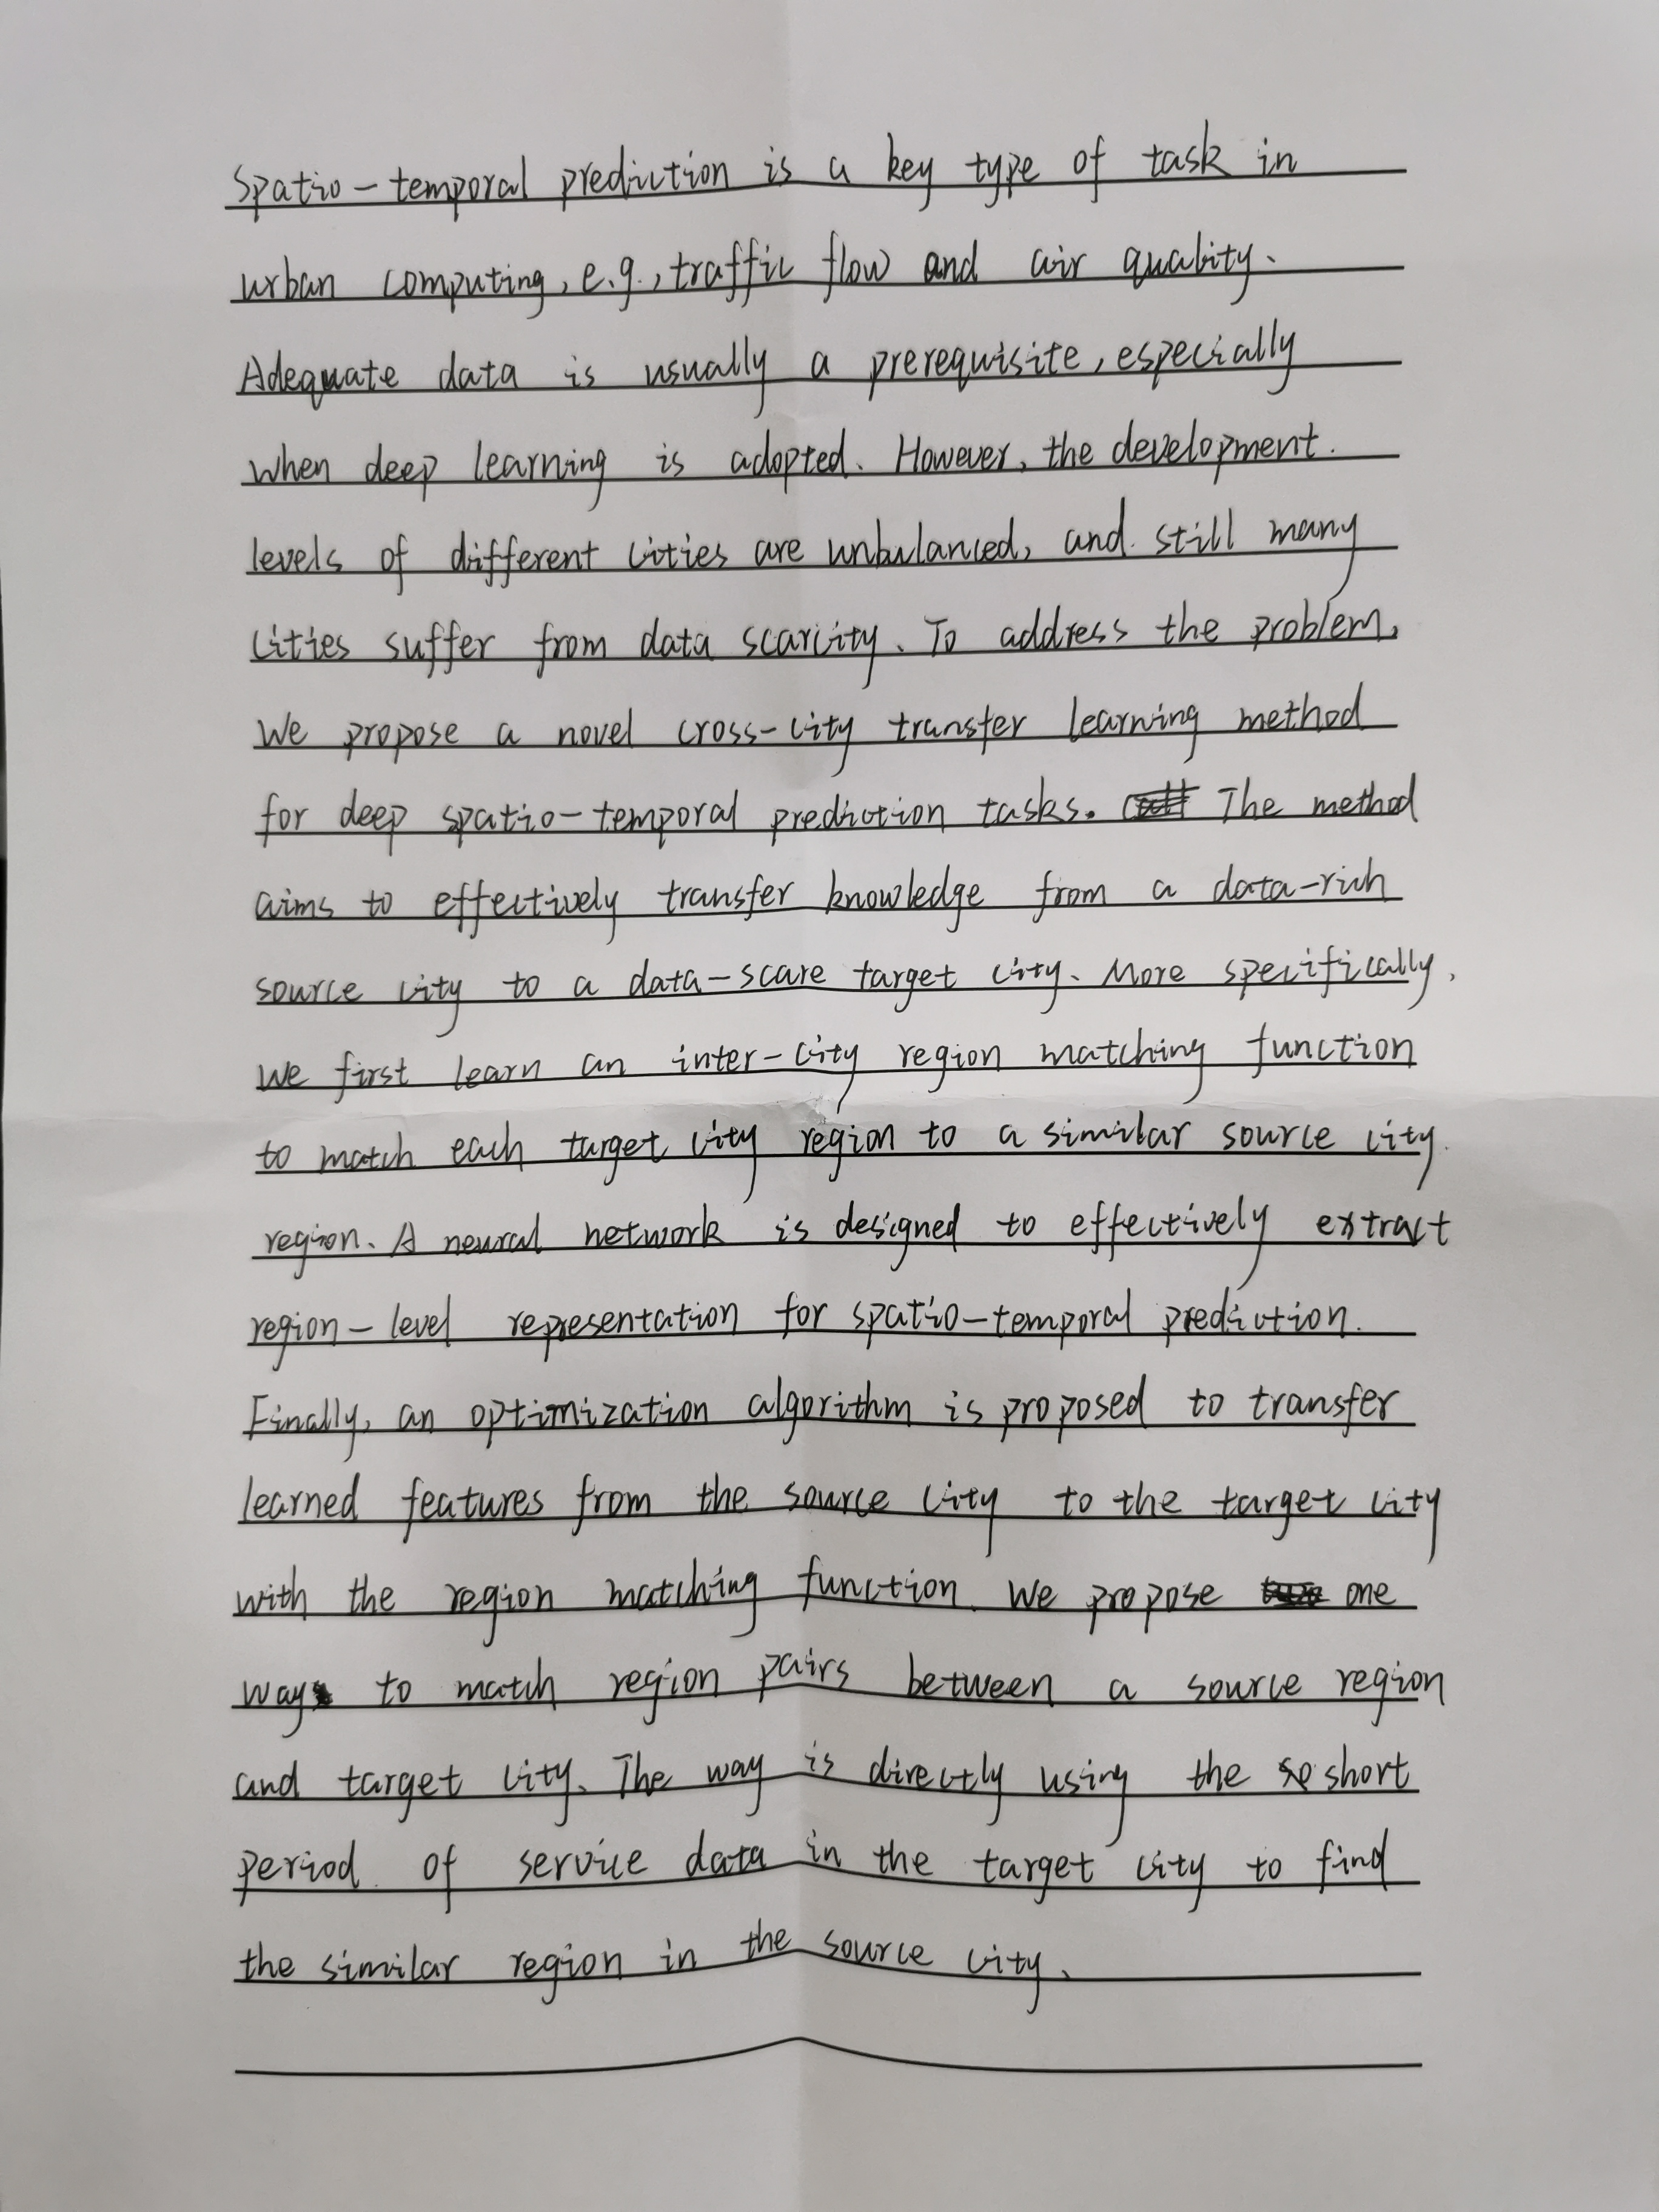 Spatio-temporal prediction is a key type of task in
urban computing, e.g., traffic flow and air quality.
Adequate data is usually a prerequisite, especially
when deep learning is adopted. However, the development
levels of different cities are unbalanced, and still many
cities suffer from data scarcity. To address the problem,
We propose a novel cross-city transfer learning method
for deep spatio-temporal prediction tasks. The method
aims to effectively transfer knowledge from a data-rich
source city to a data-scare target city. More specifically,
we first learn an inter-city region matching function
to match each target city region to a similar source city
region. A neural network is designed to effectively extract
region-level representation for spatio-temporal prediction.
Finally, an optimization algorithm is proposed to transfer
learned features from the source city to the target city
with the region matching function. We propose one
way to match region pairs between a source region
and target city. The way is directly using the short
period of service data in the target city to find
the similar region in the source city.